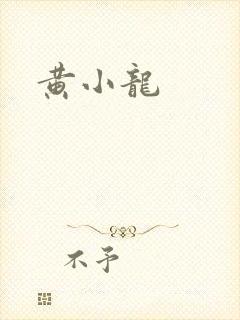 黄小龍
不予